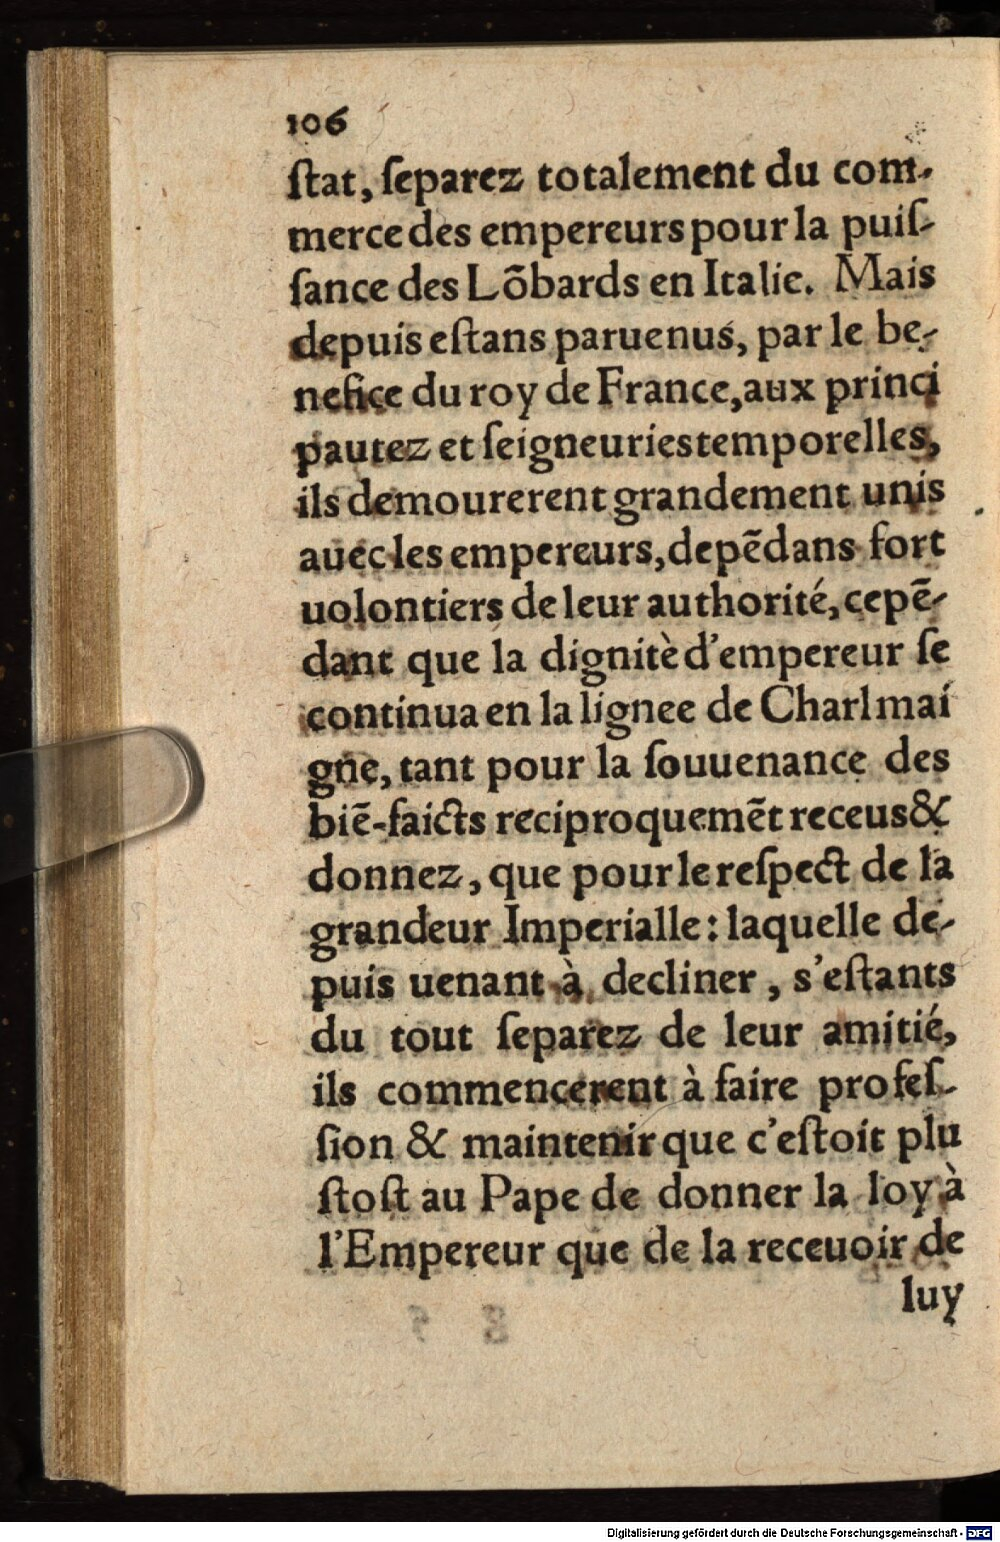 106
ſtat, ſeparez totalement du com-
merce des empereurs pour la puiſ-
ſance des Lõbards en Italie. Mais
depuis eſtans paruenus, par le be-
nefice du roy de France, aux princi
pautez et ſeigneuries temporelles,
ils demourerent grandement unis
auec les empereurs, depẽdans fort
uolontiers de leur authorité, cepẽ-
dant que la dignitè d'empereur ſe
continua en la lignee de Charlmai
gne, tant pour la ſouuenance des
biẽ-faicts reciproquemẽt receus &
donnez, que pour le reſpect de la
grandeur Imperialle: laquelle de-
puis uenant à decliner, s'eſtants
du tout ſeparez de leur amitié,
ils commencerent à faire profeſ-
ſion & maintenir que c'eſtoit plu
ſtoſt au Pape de donner la loy à
l'Empereur que de la receuoir de
luy
Digitalisierung gefördert durch die Deutsche Forschungsgemeinschaft - DFG